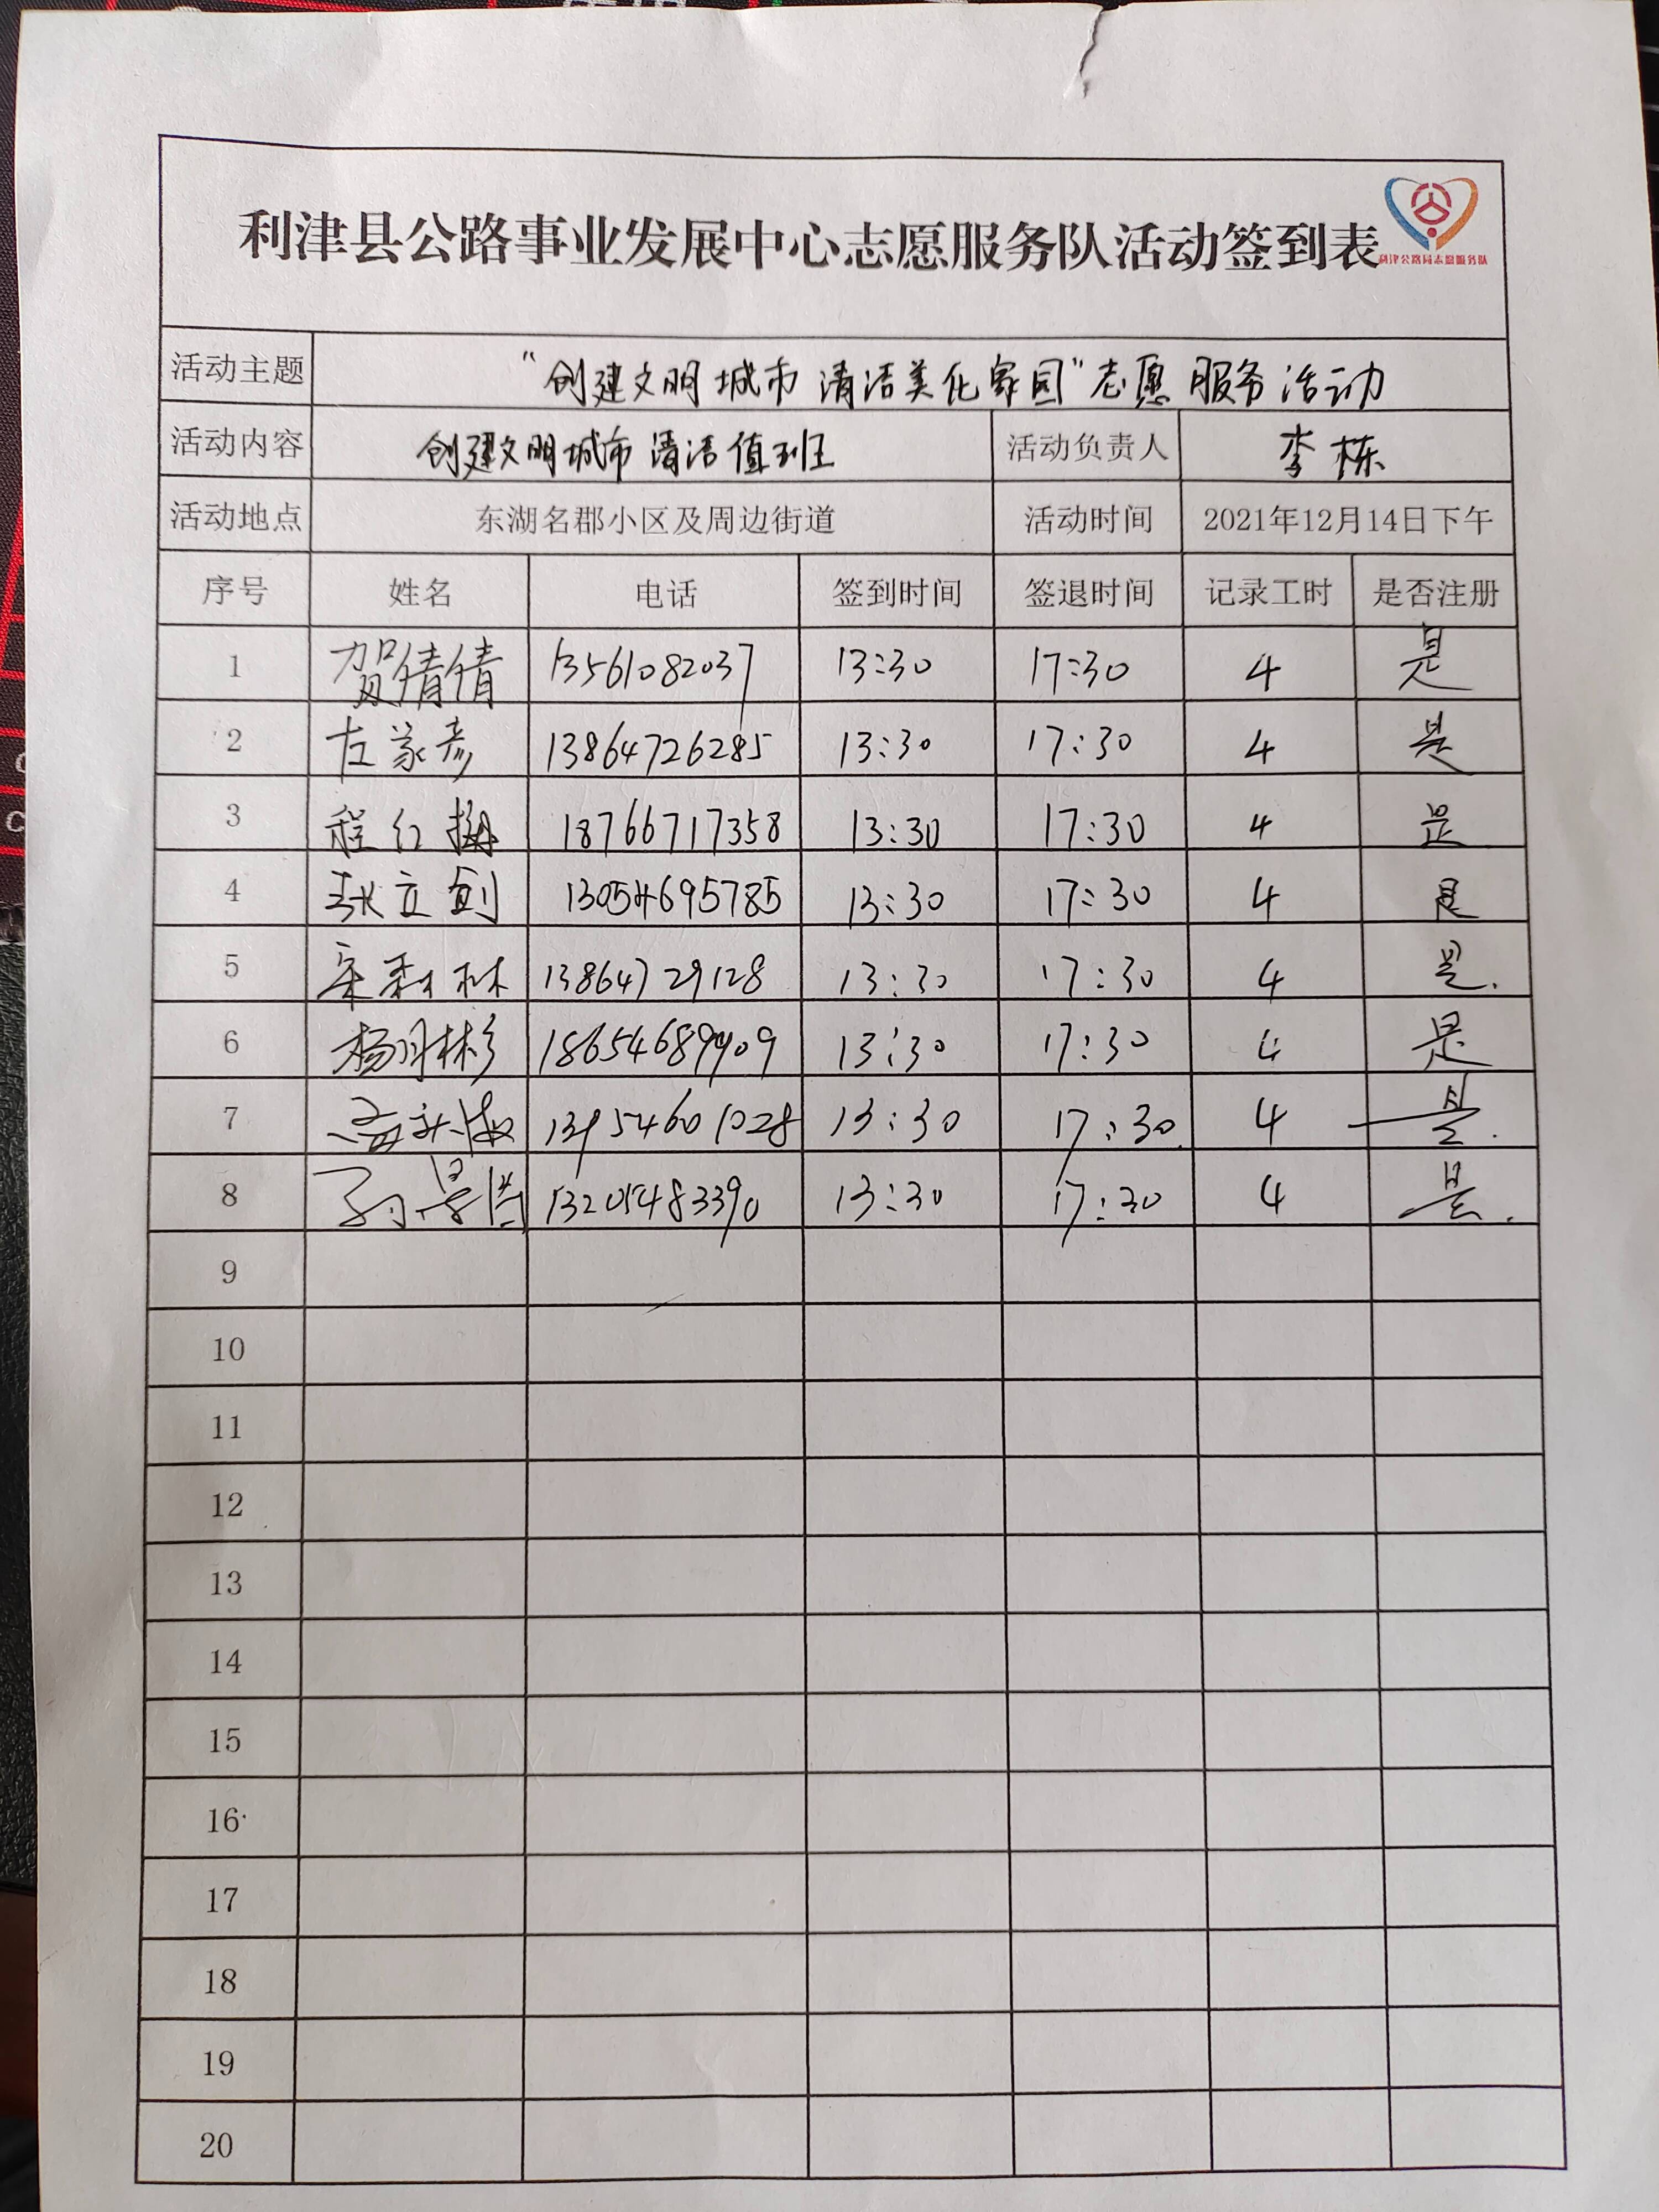 利津县公路事业发展中心志愿服务队活动签到表
利津公路局志愿服务队
活动主题 “创建文明城市 清洁美化家园”志愿服务活动
活动内容 创建文明城市 清洁值班 活动负责人 李栋
活动地点 东湖名郡小区及周边街道 活动时间 2021年12月14日下午
序号 姓名 电话 签到时间 签退时间 记录工时 是否注册
1 贺倩倩 13561082037 13:30 17:30 4 是
2 左家彦 13864726285 13:30 17:30 4 是
3 程红梅 18766717358 13:30 17:30 4 是
4 耿立剑 13054695785 13:30 17:30 4 是
5 林 13864729128 13:30 17:30 4 是.
6 杨羽彬 18654689909 13:30 17:30 4 是
7 13954601028 13:30 17:30. 4 是.
8 孙景 13205483390 13:30 17:30 4 是.
9
10
11
12
13
14
15
16
17
18
19
20